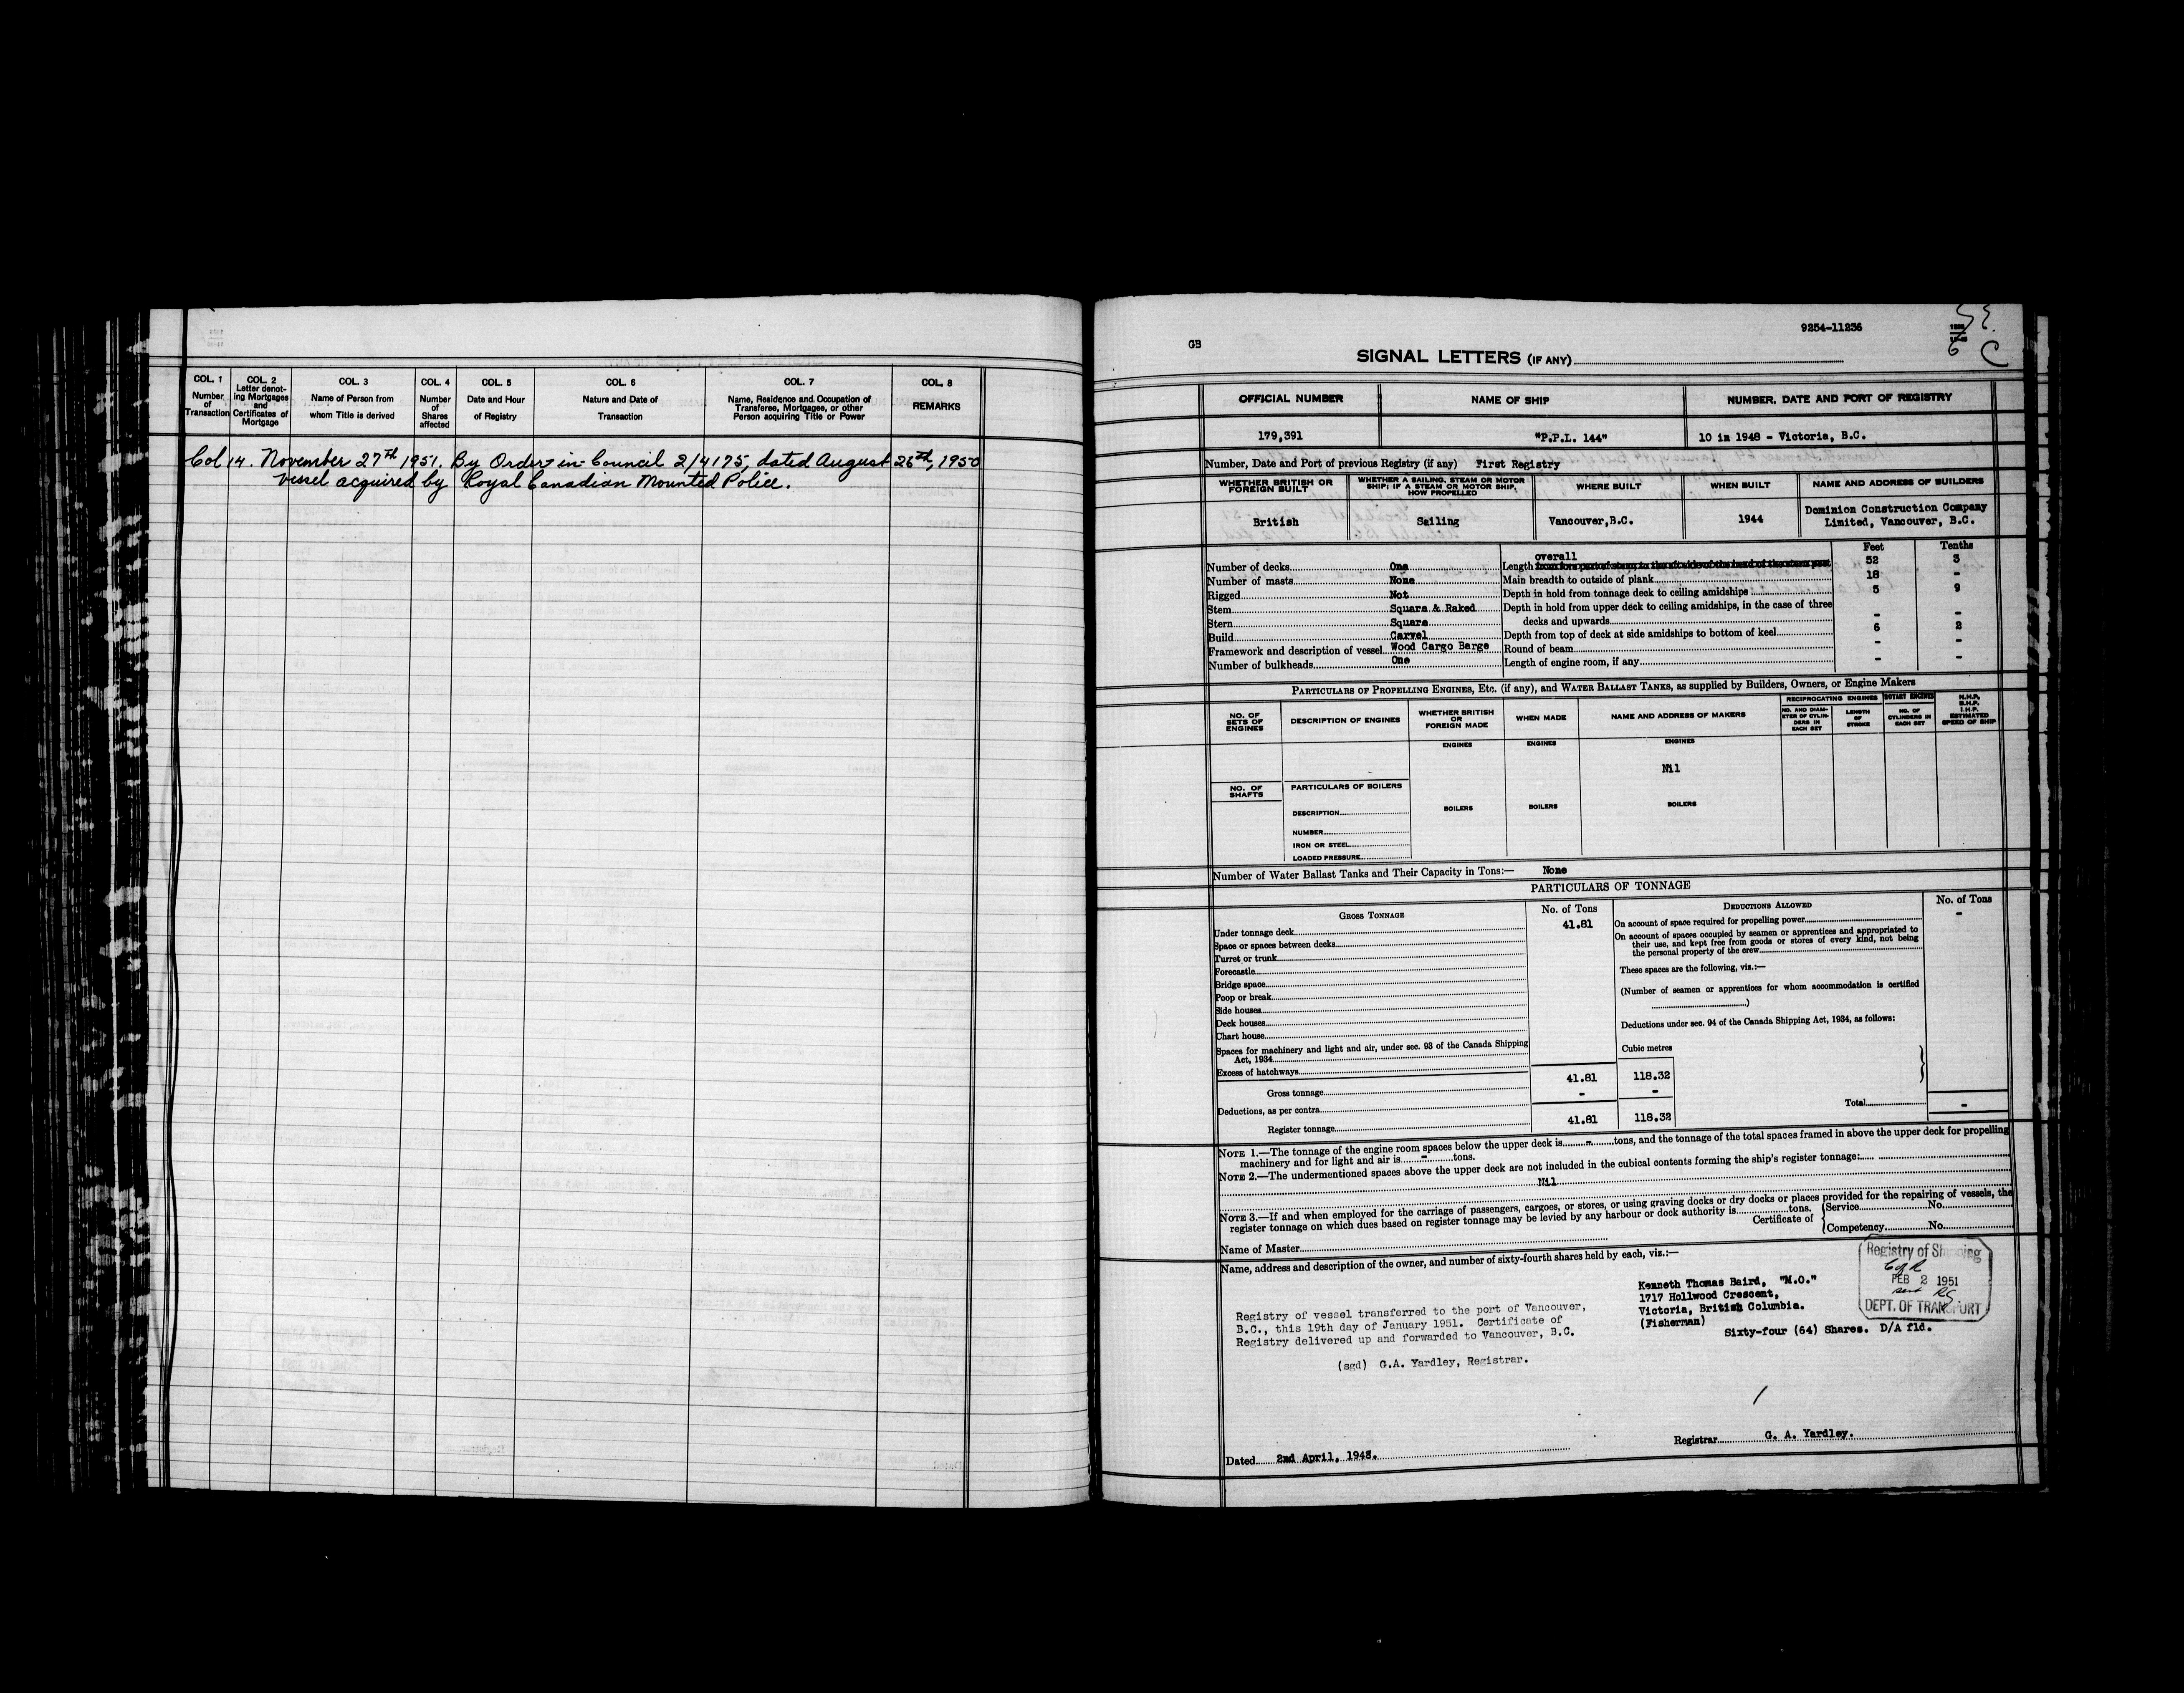 COL. 1
Number
of
Transaction
COL. 2
Letter denot-
ing Mortgages
and
Certificates of
Mortgage
COL. 3
Name of Person from
whom Title is derived
COL. 4
Number
of
Shares
affected
COL. 5
Date and Hour
of Registry
COL. 6
Nature and Date of
Transaction
COL. 7
Name, Residence and Occupation of
Transferee, Mortgagee, or other
Person acquiring Title or Power
COL. 8
REMARKS
Col 14. November 27th 1951. By Order-in-Council 2/4175, dated August 26th, 1950
vessel acquired by Royal Canadian Mounted Police.
9254-11236
GB
6 C
SIGNAL LETTERS (IF ANY)
OFFICIAL NUMBER NAME OF SHIP NUMBER, DATE AND PORT OF REGISTRY
179,391 "P.P.L. 144" 10 in 1948 - Victoria, B.C.
Number, Date and Port of previous Registry (if any) First Registry
WHETHER BRITISH OR
FOREIGN BUILT
WHETHER A SAILING, STEAM OR MOTOR
SHIP; IF A STEAM OR MOTOR SHIP,
HOW PROPELLED
WHERE BUILT WHEN BUILT NAME AND ADDRESS OF BUILDERS
British Sailing Vancouver,B.C. 1944 Dominion Construction Company
Limited, Vancouver, B.C.
Feet Tenths
Number of decks One
Number of masts None
Rigged Not
Stem Square & Raked
Stern Square
Build Carvel
Framework and description of vessel Wood Cargo Barge
Number of bulkheads One
overall
Length from fore part of stem to the aft side of the head of the stern post 52 3
Main breadth to outside of plank 18 -
Depth in hold from tonnage deck to ceiling amidships 5 9
Depth in hold from upper deck to ceiling amidships, in the case of three
decks and upwards - -
Depth from top of deck at side amidships to bottom of keel 6 2
Round of beam - -
Length of engine room, if any - -
PARTICULARS OF PROPELLING ENGINES, ETC. (if any), and WATER BALLAST TANKS, as supplied by Builders, Owners, or Engine Makers
NO. OF
SETS OF
ENGINES
DESCRIPTION OF ENGINES
WHETHER BRITISH
OR
FOREIGN MADE
WHEN MADE
NAME AND ADDRESS OF MAKERS
RECIPROCATING ENGINES
NO. AND DIAM-
ETER OF CYLIN-
DERS IN
EACH SET
LENGTH
OF
STROKE
ROTARY ENGINES
NO. OF
CYLINDERS IN
EACH SET
N.H.P.
B.H.P.
I.H.P.
ESTIMATED
SPEED OF SHIP
ENGINES ENGINES ENGINES
Nil
NO. OF
SHAFTS
PARTICULARS OF BOILERS
BOILERS BOILERS BOILERS
DESCRIPTION
NUMBER
IRON OR STEEL
LOADED PRESSURE
Number of Water Ballast Tanks and Their Capacity in Tons:— None
PARTICULARS OF TONNAGE
GROSS TONNAGE No. of Tons
Under tonnage deck 41.81
Space or spaces between decks
Turret or trunk
Forecastle
Bridge space
Poop or break
Side houses
Deck houses
Chart house
Spaces for machinery and light and air, under sec. 93 of the Canada Shipping
Act, 1934
Excess of hatchways
Gross tonnage 41.81 118.32
Deductions, as per contra - -
Register tonnage 41.81 118.32
DEDUCTIONS ALLOWED No. of Tons
On account of space required for propelling power -
On account of spaces occupied by seamen or apprentices and appropriated to
their use, and kept free from goods or stores of every kind, not being
the personal property of the crew
These spaces are the following, viz.:—
(Number of seamen or apprentices for whom accommodation is certified
)
Deductions under sec. 94 of the Canada Shipping Act, 1934, as follows:
Cubic metres
Total -
NOTE 1.—The tonnage of the engine room spaces below the upper deck is - tons, and the tonnage of the total spaces framed in above the upper deck for propelling
machinery and for light and air is - tons.
NOTE 2.—The undermentioned spaces above the upper deck are not included in the cubical contents forming the ship's register tonnage:
Nil
NOTE 3.—If and when employed for the carriage of passengers, cargoes, or stores, or using graving docks or dry docks or places provided for the repairing of vessels, the
register tonnage on which dues based on register tonnage may be levied by any harbour or dock authority is tons.
Certificate of
Service No.
Competency No.
Name of Master
Name, address and description of the owner, and number of sixty-fourth shares held by each, viz.:—
Kenneth Thomas Baird, "M.O."
1717 Hollwood Crescent,
Victoria, British Columbia.
(Fisherman)
Sixty-four (64) Shares. D/A fld.
Registry of Shipping
FEB 2 1951
DEPT. OF TRANSPORT
Registry of vessel transferred to the port of Vancouver,
B.C., this 19th day of January 1951. Certificate of
Registry delivered up and forwarded to Vancouver, B.C.
(sgd) G.A. Yardley, Registrar.
Dated 2nd April, 1948.
Registrar G. A. Yardley.